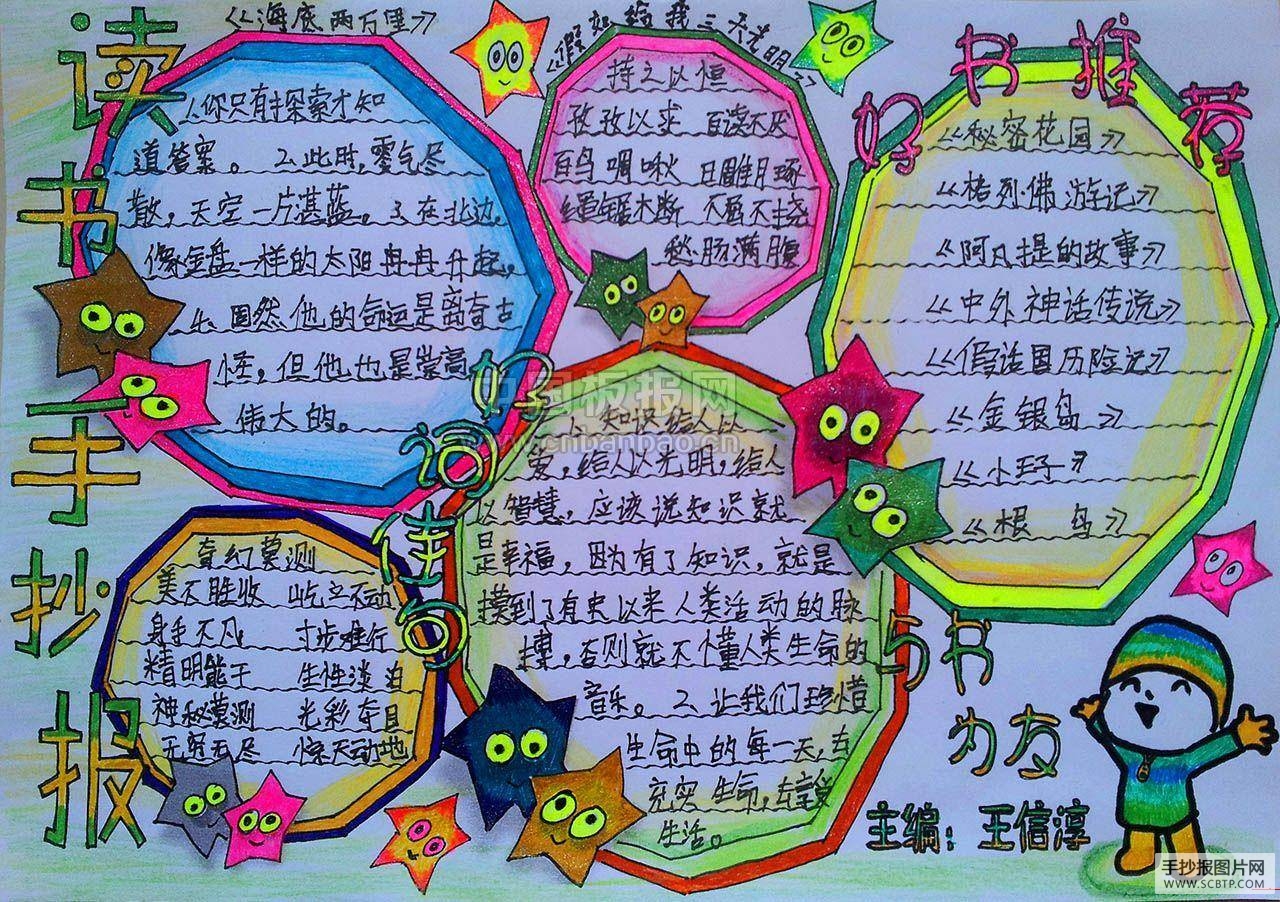 读书手抄报
《海底两万里》
1、你只有探索才知
道答案。2、此时,雾气尽
散,天空一片湛蓝。3、在北边,
像金盘一样的太阳冉冉升起,
4、固然他的命运是离奇古
怪,但他也是崇高
伟大的。
《假如给我三天光明》
持之以恒
孜孜以求 百读不厌
百鸟啁啾 日雕月琢
绳锯木断 不屈不挠
愁肠满腹
好书推荐
《秘密花园》
《格列佛游记》
《阿凡提的故事》
《中外神话传说》
《假话国历险记》
《金银岛》
《小王子》
《根鸟》
好词佳句
奇幻莫测
美不胜收 屹立不动
身手不凡 寸步难行
精明能干 生性淡泊
神秘莫测 光彩夺目
无穷无尽 惊天动地
1、知识给人以
爱,给人以光明,给人
以智慧,应该说知识就
是幸福,因为有了知识,就是
摸到了有史以来人类活动的脉
搏,否则就不懂人类生命的
音乐。2、让我们珍惜
生命中的每一天,去
充实生命,去享受
生活。
与书
为友
主编:王信淳
中国板报网
www.cnbanbao.cn
手抄报图片网
WWW.SCBTP.COM